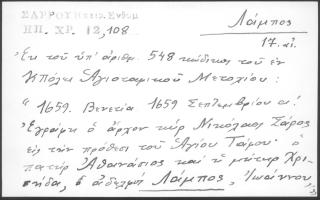 ΣΑΡΡΟΥ Πετρ. Ενθυμ
ΗΠ. ΧΡ. 12, 108
Λάμπος
17. αἰ.
Ἐκ τοῦ ὑπ' ἀριθμ. 548 κώδικος τοῦ ἐν
Κπόλει Ἁγιοταφικοῦ Μετοχίου :
"1659. Βενετία 1659 Σεπτεμβρίου α!
Ἐγράφη ὁ ἄρχον κὺρ Νικόλαος Σάρος
εἰς τὴν πρόθεσι τοῦ Ἁγίου Τάφου· ὁ
πατὴρ Ἀθανάσιος καὶ ἡ μήτηρ Χρι-
σηΐδα, ὁ ἀδελφὸς Λάμπος, Ἰωάννου,